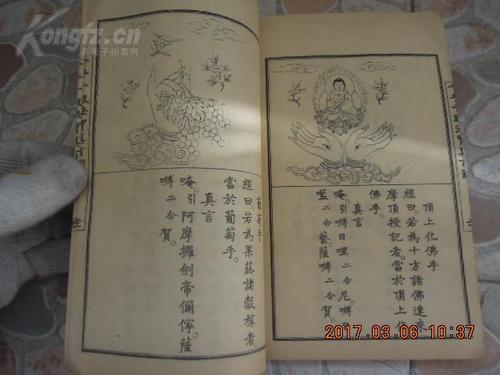 頂上化佛手
經曰若為十方諸佛速來
摩頂授記者當於頂上化
佛手。
真言
唵。引嚩日哩二合尼。嚩
二合藝薩嚩二合賀。
葡萄手
經曰若為果蓏諸穀稼者
當於葡萄手。
真言
唵。引阿摩攞劍帝儞
薩
嚩二合賀。
Kongfz.cn
2017.03.06 10:37